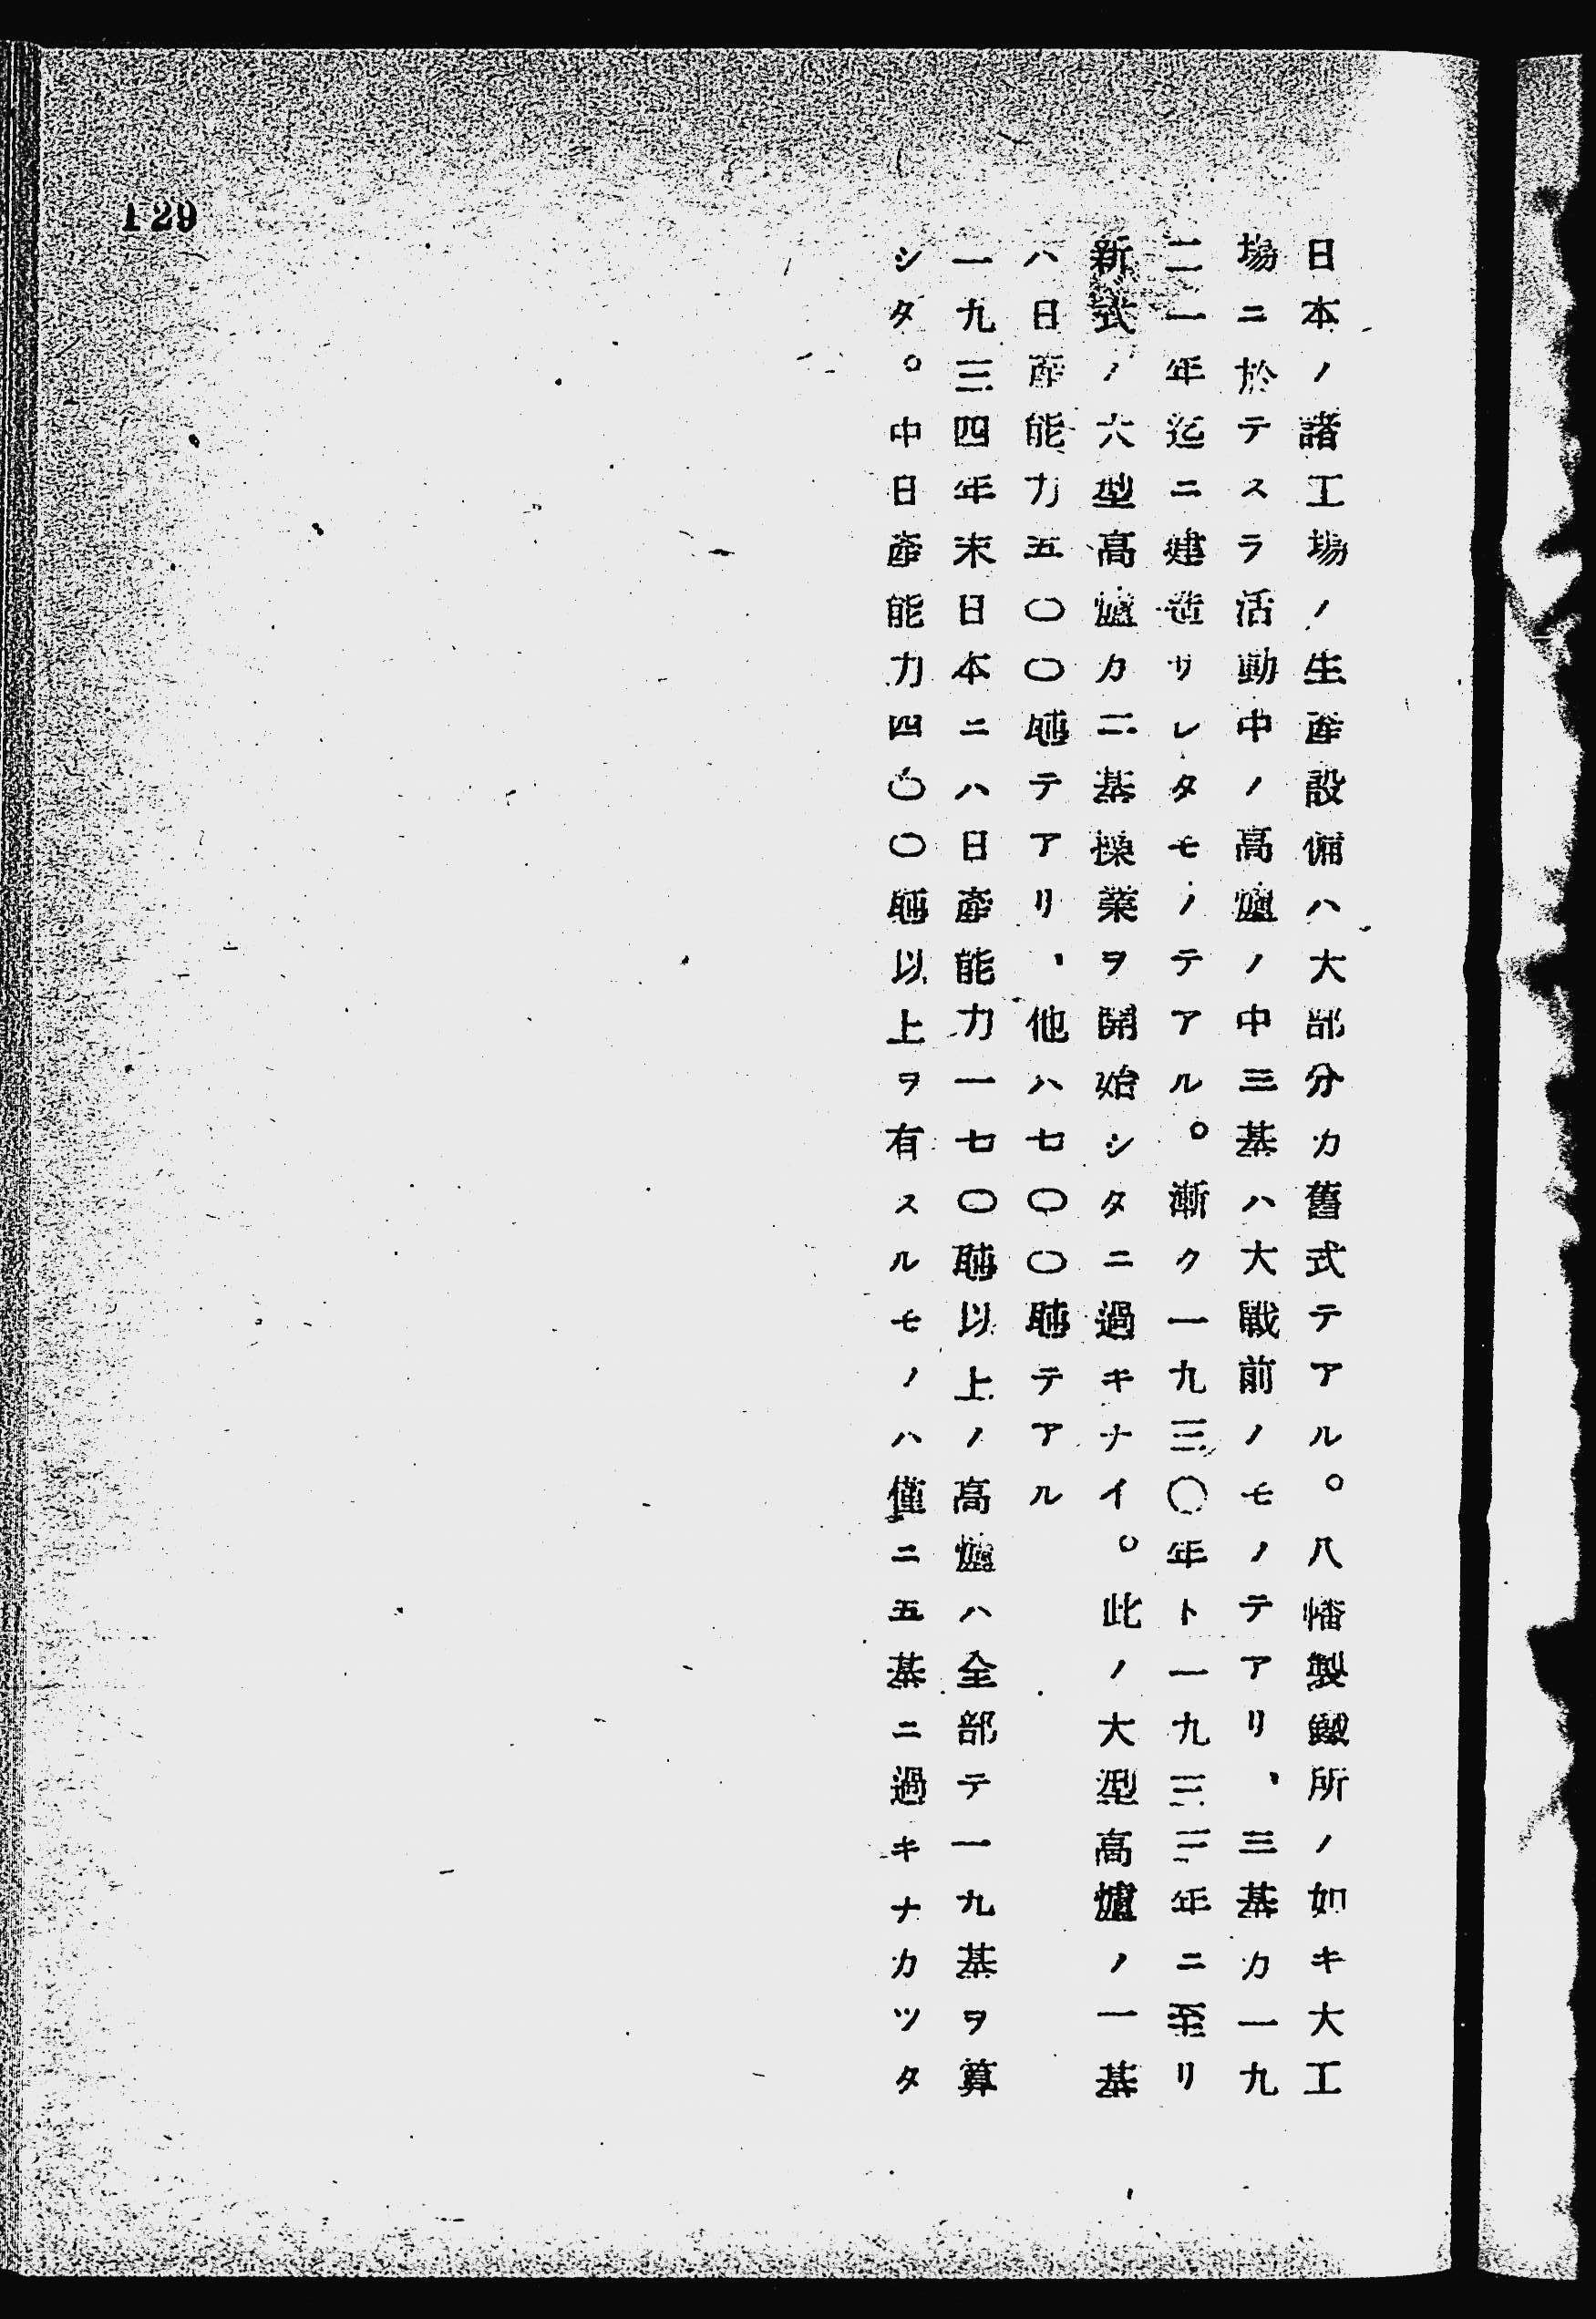 日本ノ諸工場ノ生產設備ハ大部分カ舊式テアル。八幡製鐵所ノ如キ大工
場ニ於テスラ活動中ノ高爐ノ中三基ハ大戰前ノモノテアリ、三基カ一九
二一年迄ニ建造サレタモノテアル。漸ク一九三〇年ト一九三三年ニ至リ
新式ノ大型高爐カ二基操業ヲ開始シタニ過キナイ。此ノ大型高爐ノ一基
ハ日產能力五〇〇瓲テアリ、他ハ七〇〇瓲テアル
一九三四年末日本ニハ日產能力一七〇瓲以上ノ高爐ハ全部テ一九基ヲ算
シタ。中日產能力四〇〇瓲以上ヲ有スルモノハ僅ニ五基ニ過キナカツタ
129